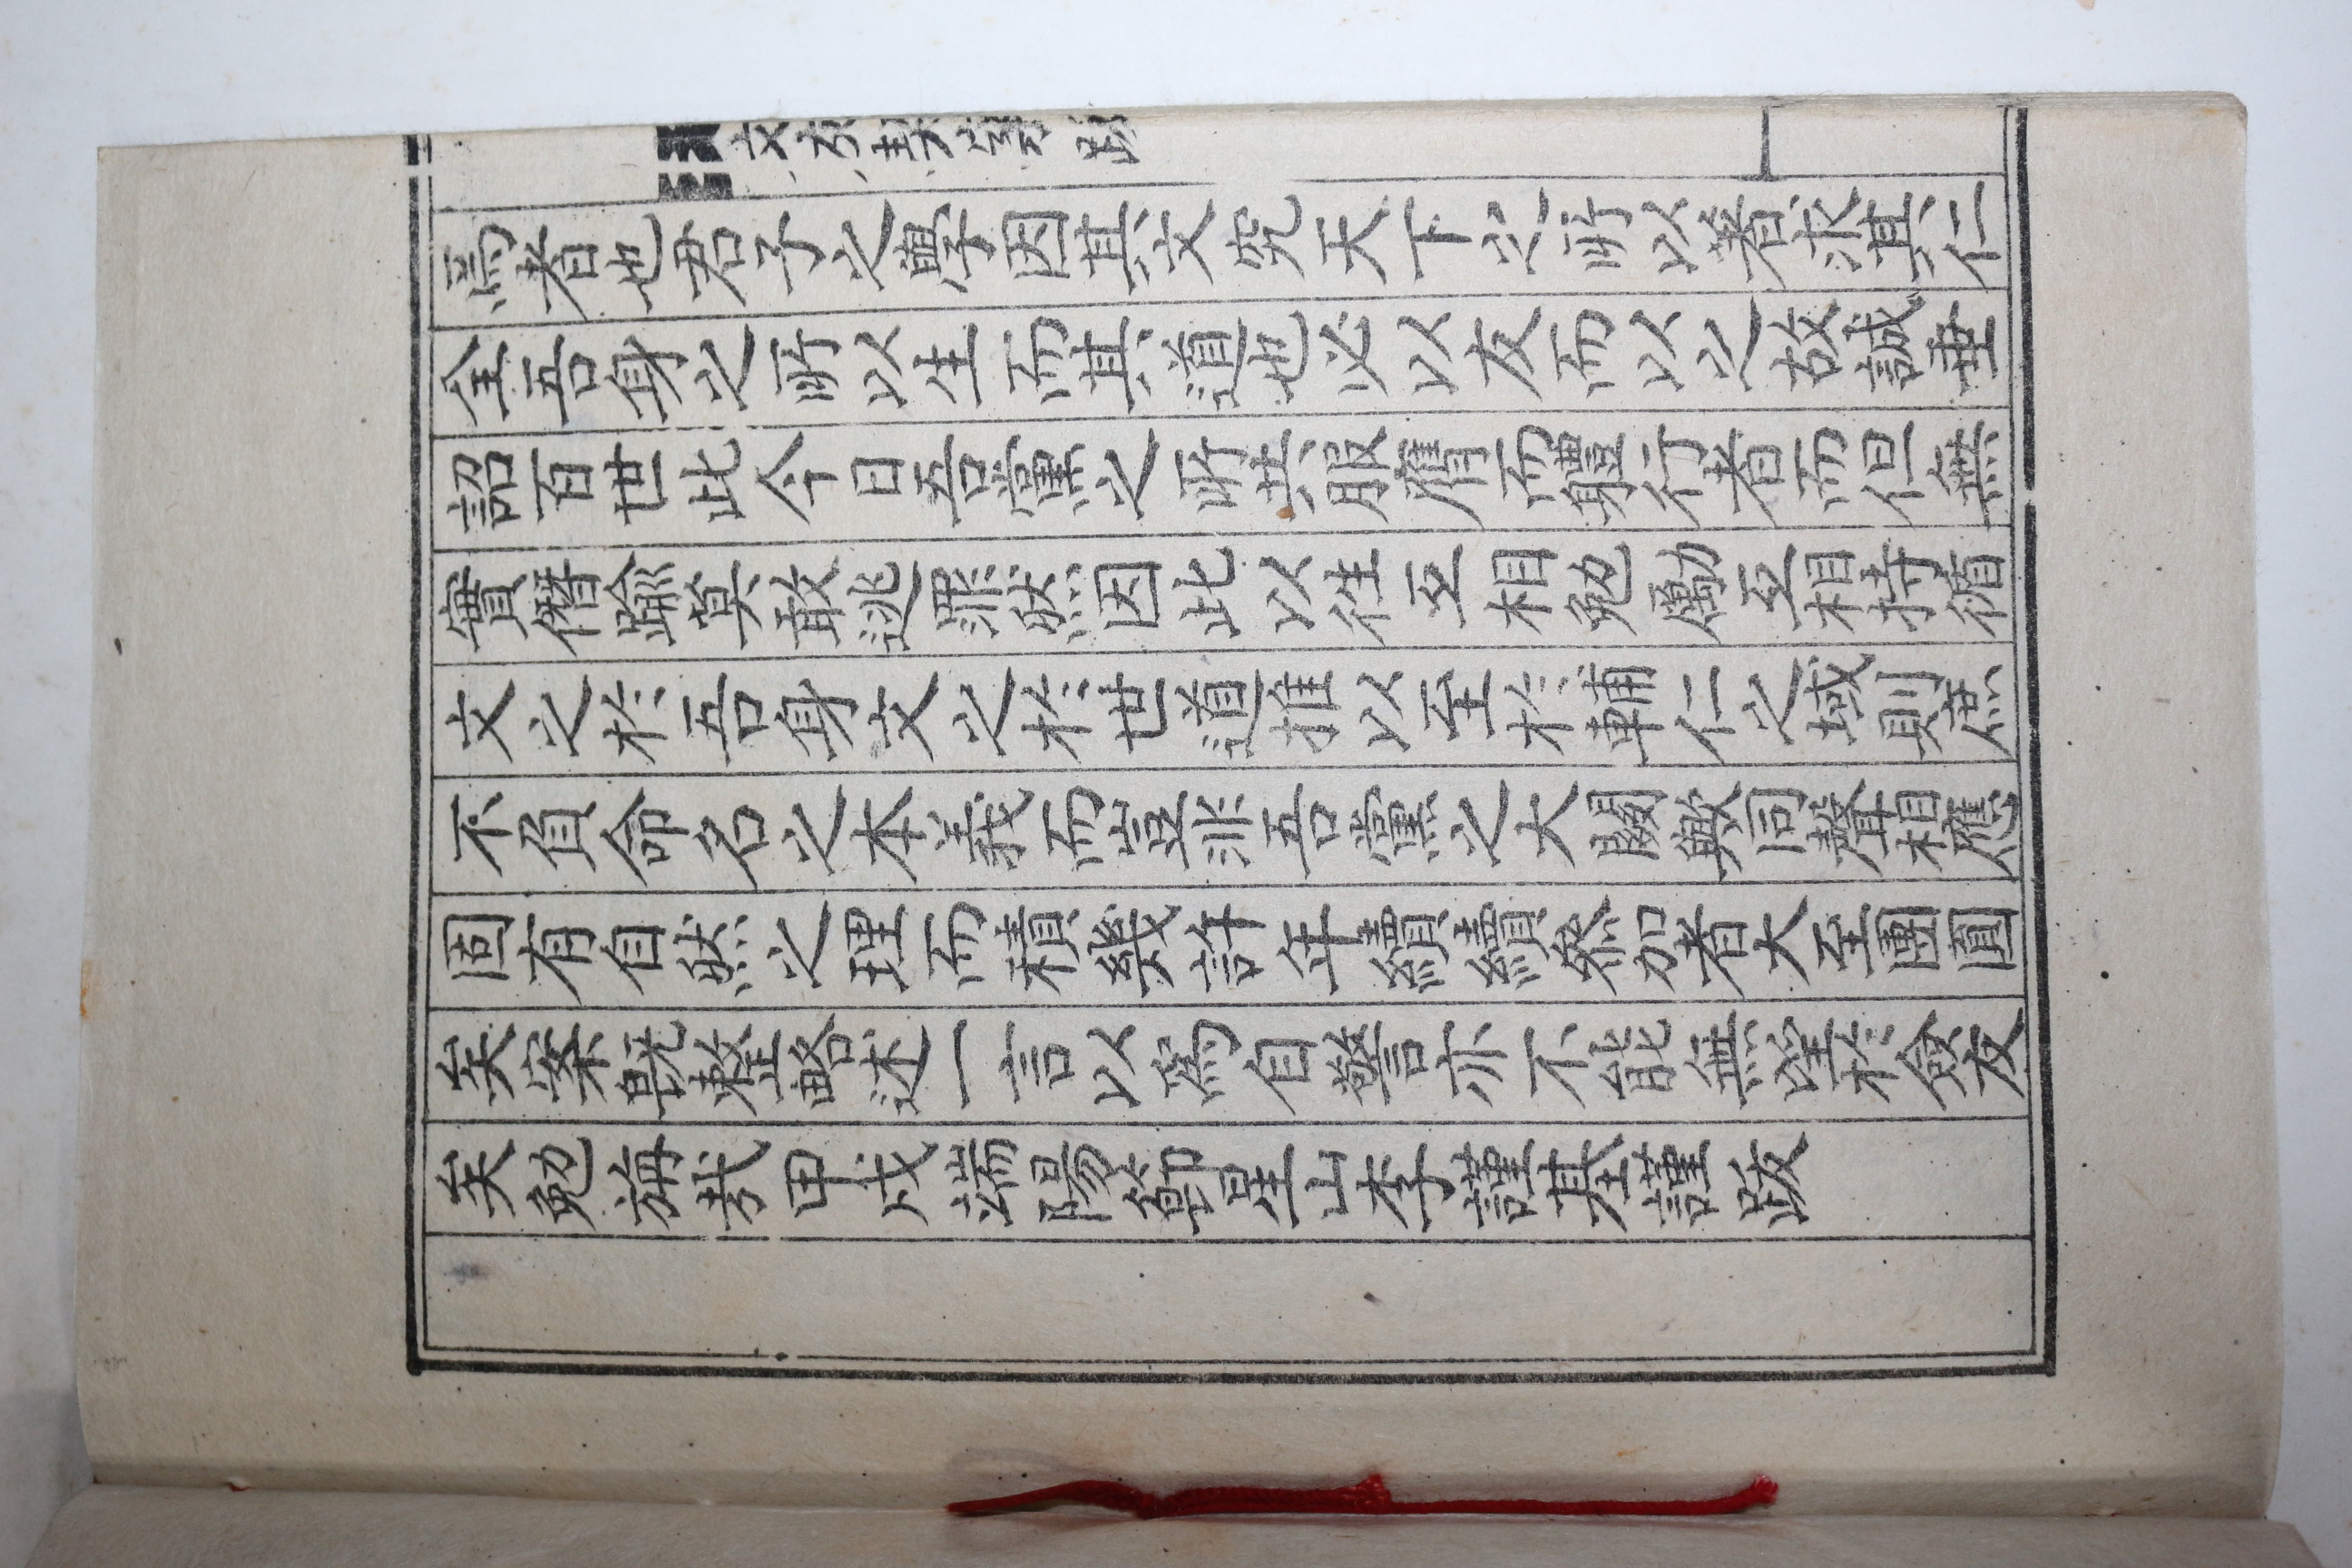 焉者也君子之學因其文究天下之所以著求其仁
全吾身之所以生而其道也必以友而以之故誠垂
詔百世此今日吾黨之所共服膺而軆行者而但無
實僭踰莫敢逃罪然因此以往互相勉勵互相持循
文之於吾身文之於世道推以至於輔仁之域則庶
不負命名之本義而豈非吾黨之大關歟同聲相應
固有自然之理而積幾許年續續叅加者大至團圓
矣案旣整略述一言以爲自警言亦不能無望於僉友
矣勉旃哉甲戌端陽節星山李謹基謹跋